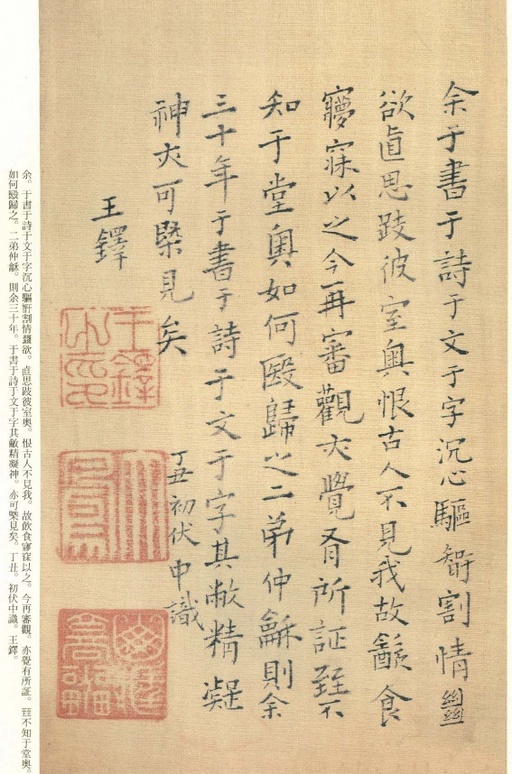 余于書于詩于文于字沉心驅智割情㡭
欲直思跂彼室奧恨古人不見我故飲食
寢寐以之今再審觀亦覺有所証至不
知于堂奧如何殹歸之二弟仲龢則余
三十年于書于詩于文于字其敝精凝
神亦可槩見矣
丁丑初伏中識
王鐸
余。于書于詩于文于字沉心驅智割情㡭欲。直思跂彼室奧。恨古人不見我。故飲食寢寐以之。今再審觀。亦覺有所証。至不知于堂奧。
如何殹歸之。二弟仲龢。則余三十年。于書于詩于文于字其敝精凝神。亦可槩見矣。丁丑。初伏中識。王鐸。